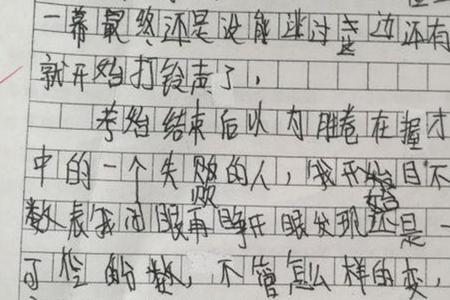 一幕最终还是没能逃过走边还有
就开始打铃声了，
考始结束后以为胜卷在握才
中的一个失败的人，我开始目不
败
始
数表我闭眼再睁开眼发现还是一
可怜的分数，不管怎么样的变，